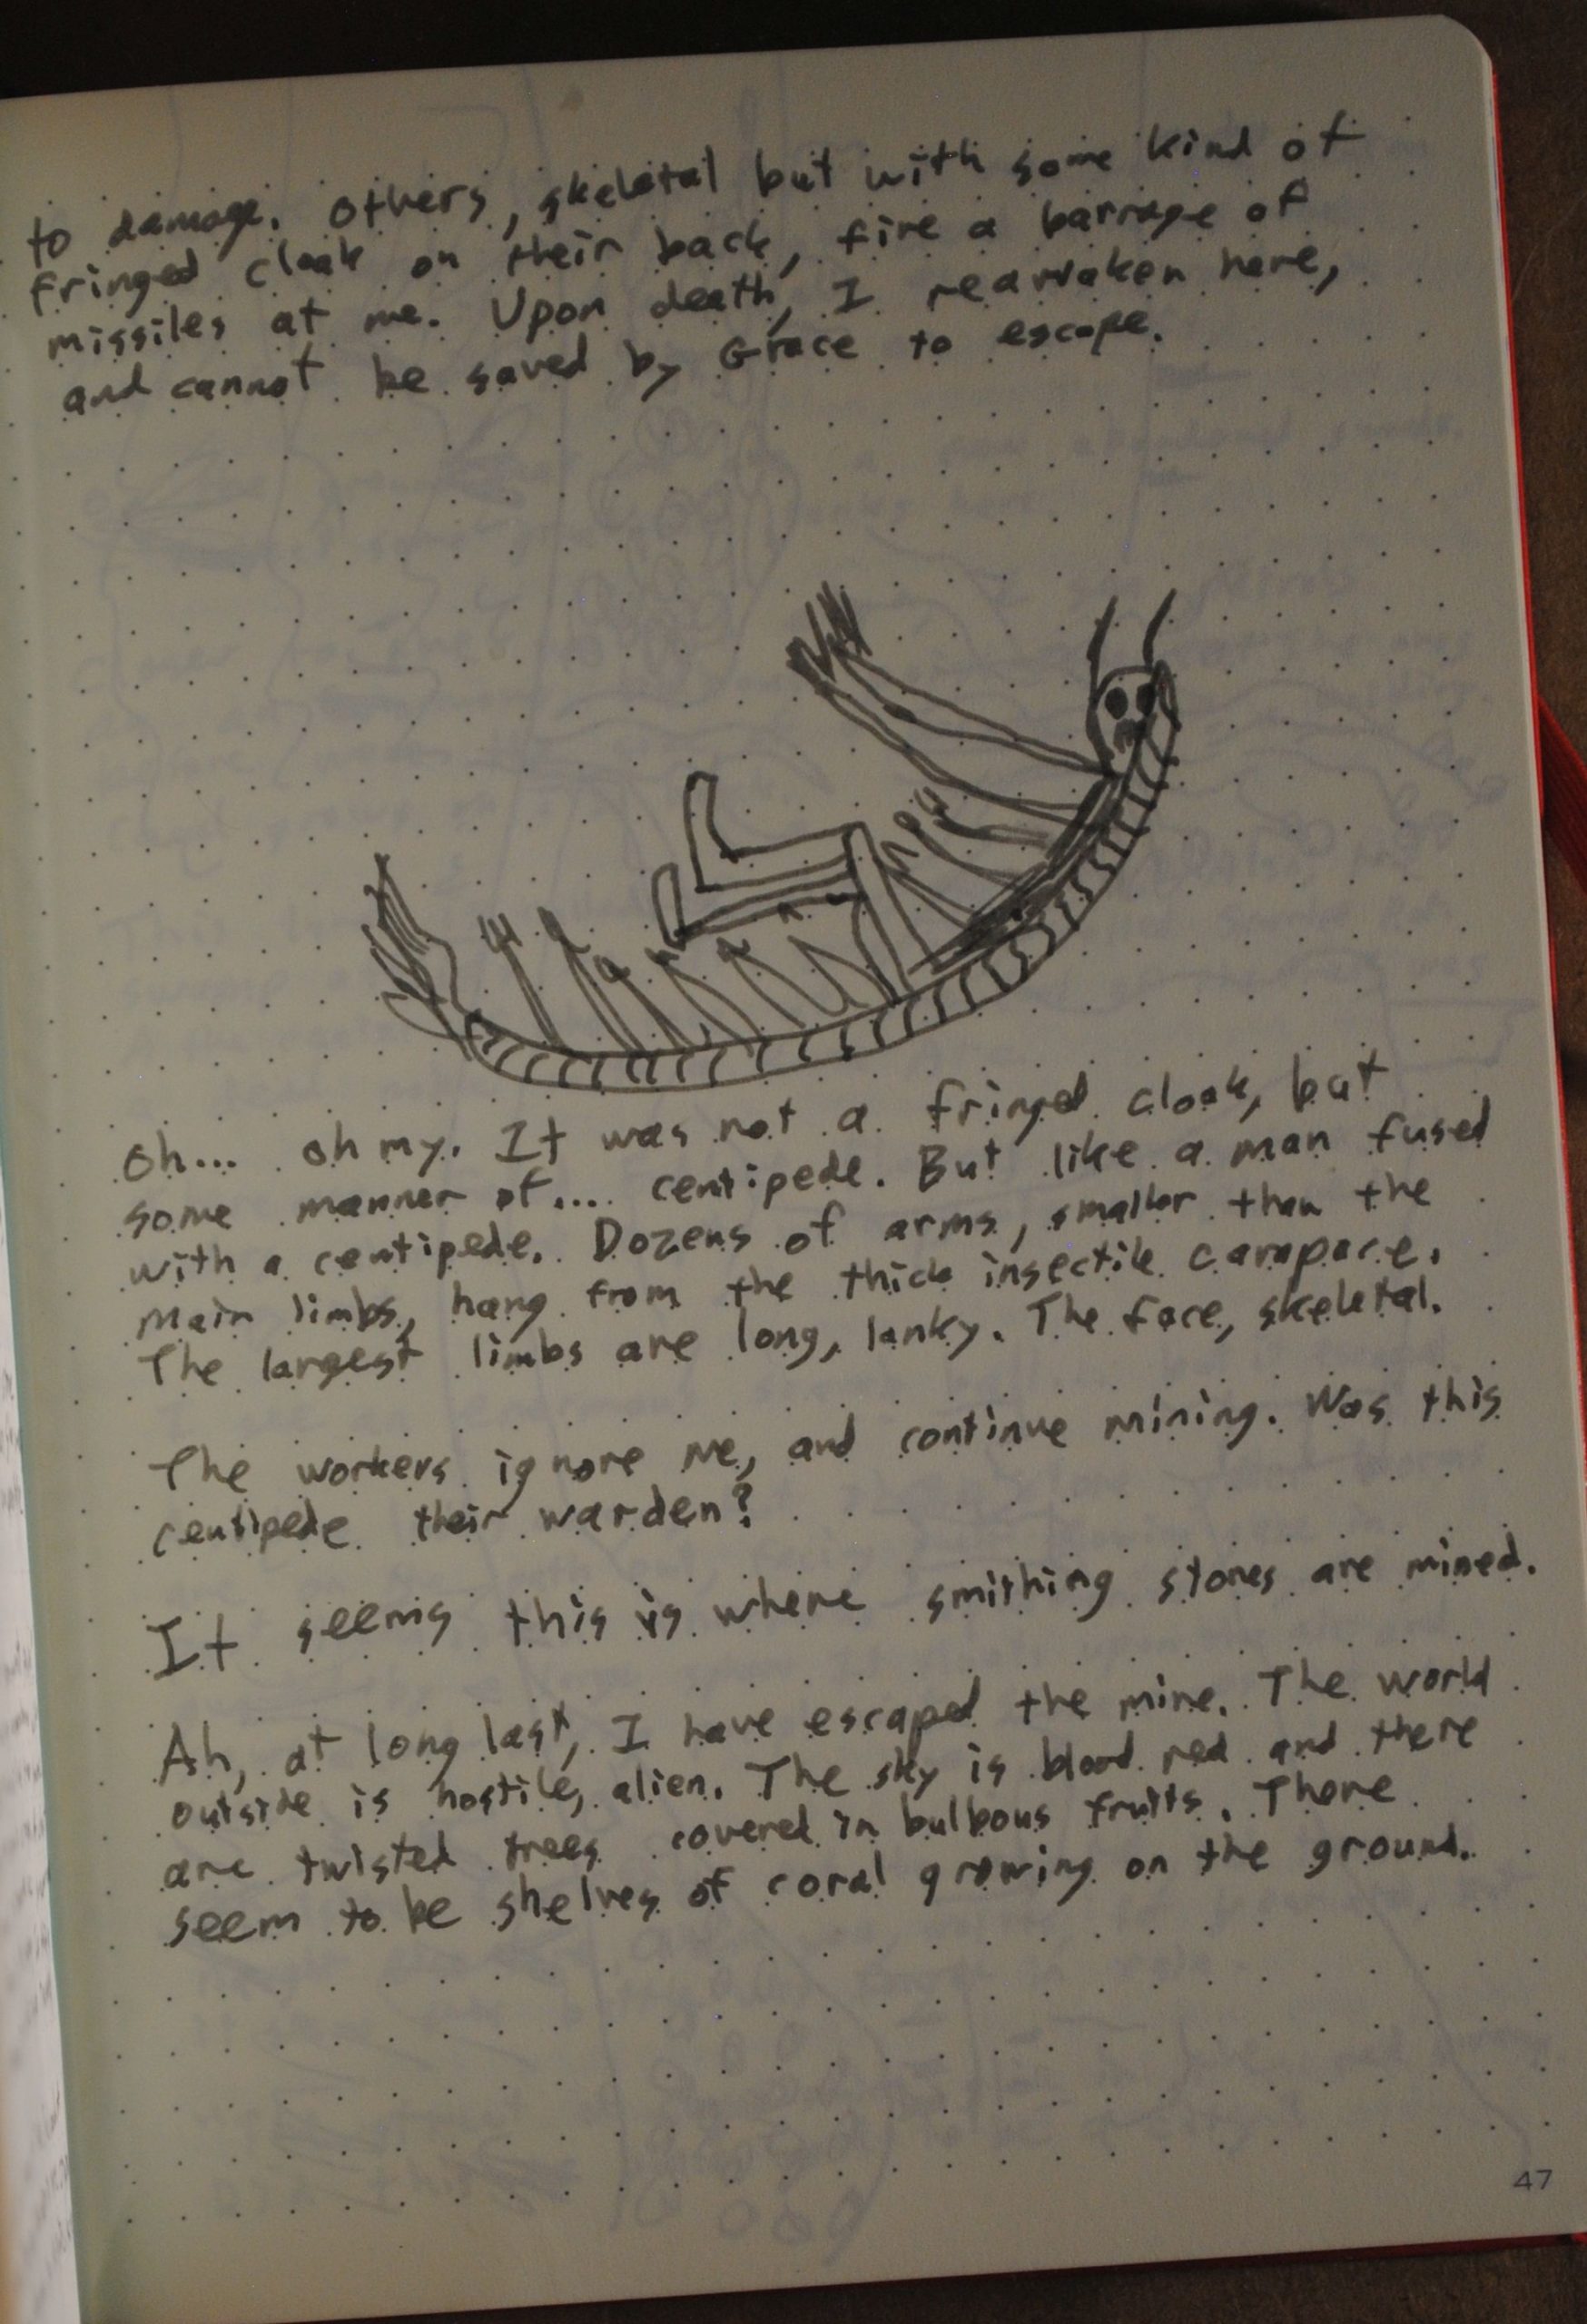 to damage. Others, skeletal but with some kind of
fringed cloak on their back, fire a barrage of
missiles at me. Upon death, I reawaken here,
and cannot be saved by Grace to escape.
Oh... oh my. It was not a fringed cloak, but
some manner of.... centipede. But like a man fused
with a centipede. Dozens of arms, smaller than the
main limbs, hang from the thick insectile carapace.
The largest limbs are long, lanky. The face, skeletal.
The workers ignore me, and continue mining. Was this
centipede their warden?
It seems this is where smithing stones are mined.
Ah, at long last, I have escaped the mine. The world
outside is hostile, alien. The sky is blood red and there
are twisted trees covered in bulbous fruits. There
seem to be shelves of coral growing on the ground.
47